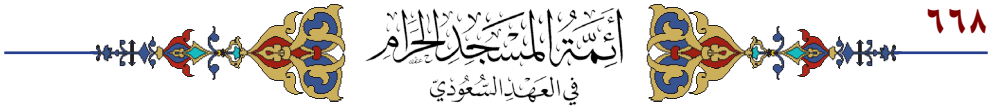 ٦٦٨
أَئِمَّةُ المَسْجِدِ الحَرَامِ
فِي العَهْدِ السُّعُودِيِّ